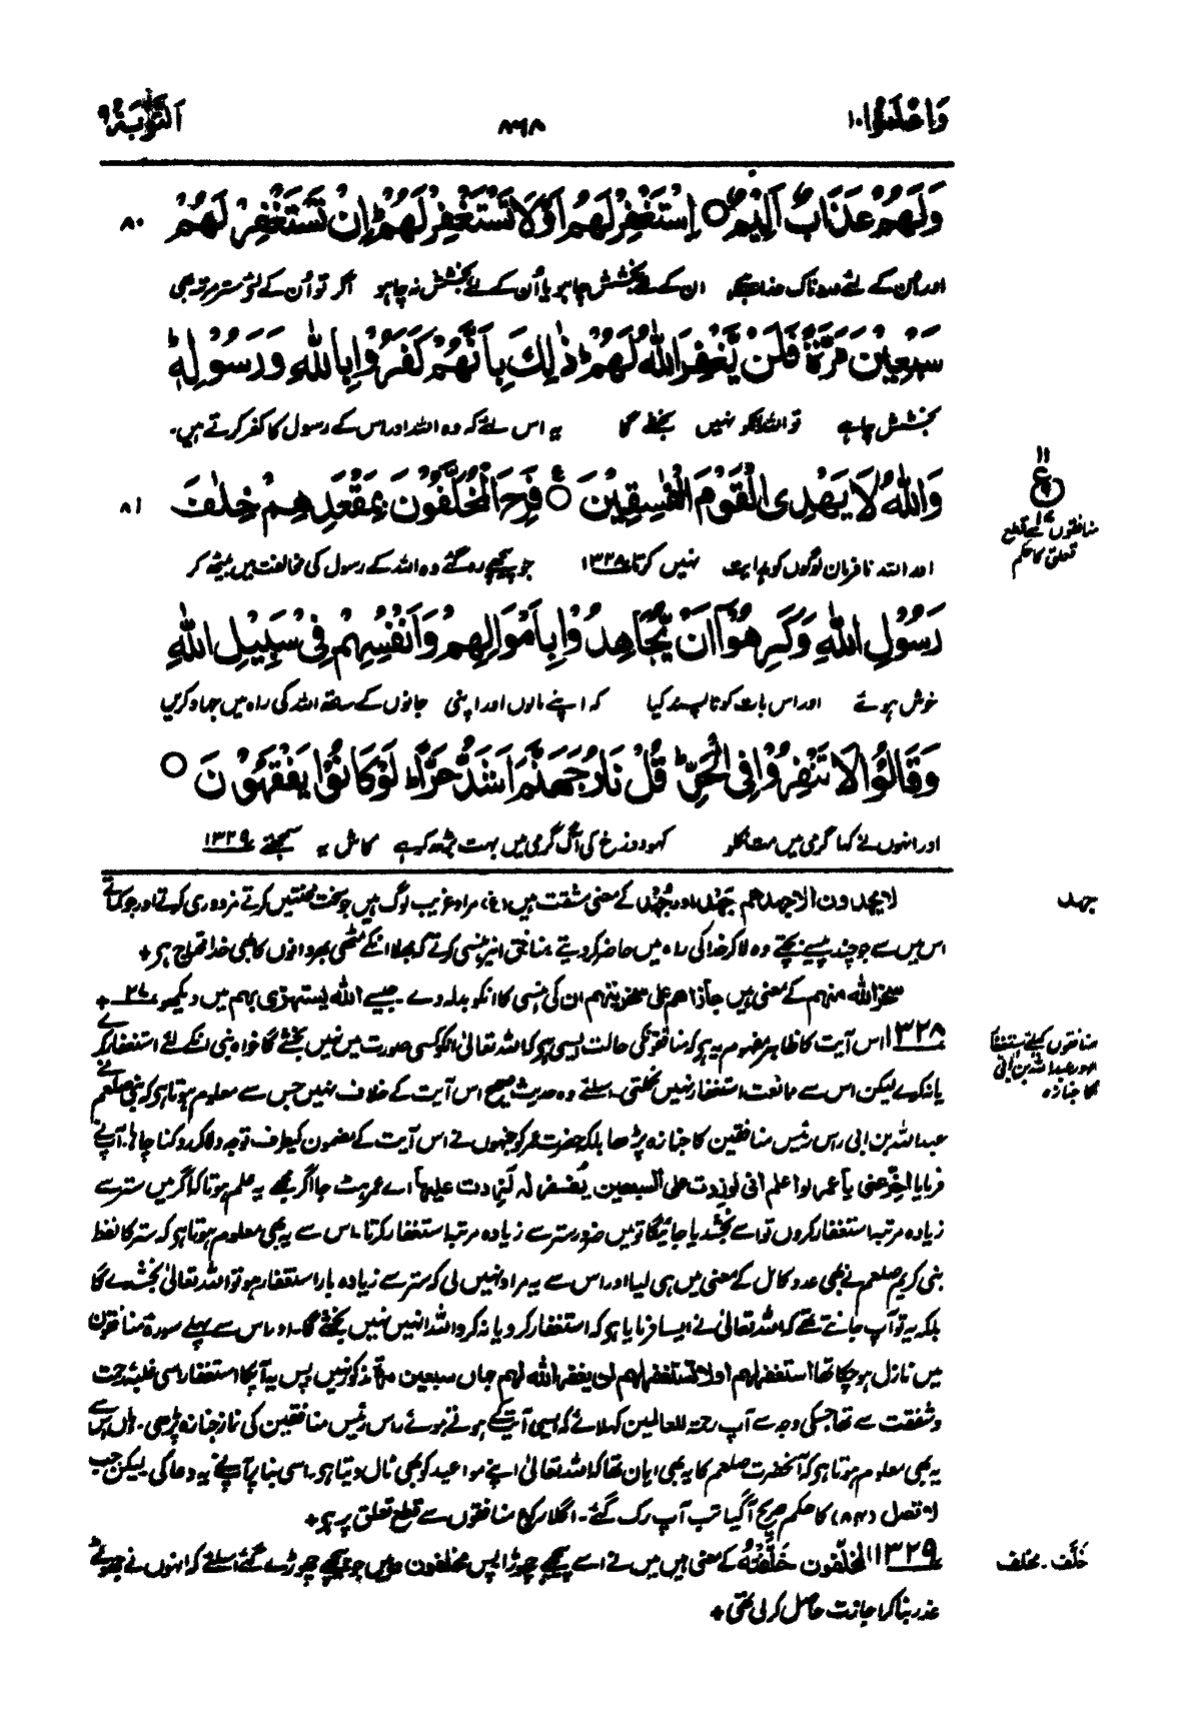 وَاعْلَمُوْۤا ۱۰
۸۶۸
اَلتَّوْبَةُ ۹
وَلَهُمْ عَذَابٌ اَلِیْمٌ ○ اِسْتَغْفِرْ لَهُمْ اَوْ لَا تَسْتَغْفِرْ لَهُمْ ؕ اِنْ تَسْتَغْفِرْ لَهُمْ
۸۰
اور اُن کے لئے دردناک عذاب ہے ان کے لئے بخشش چاہو یا اُن کے لئے بخشش نہ چاہو اگر تو اُن کے لئے ستر مرتبہ بھی
سَبْعِیْنَ مَرَّةً فَلَنْ یَّغْفِرَ اللّٰهُ لَهُمْ ؕ ذٰلِكَ بِاَنَّهُمْ كَفَرُوْا بِاللّٰهِ وَرَسُوْلِهٖ ؕ
بخشش چاہے تو اللہ انکو نہیں بخشے گا یہ اس لئے کہ وہ اللہ اور اس کے رسول کا کفر کرتے ہیں۔
وَاللّٰهُ لَا یَهْدِی الْقَوْمَ الْفٰسِقِیْنَ ○ فَرِحَ الْمُخَلَّفُوْنَ بِمَقْعَدِهِمْ خِلٰفَ
۸۱
۱۱
ع
منافقوں سے قطع
تعلق کا حکم
اور اللہ نافرمان لوگوں کو ہدایت نہیں کرتا ۱۳۲۸ جو پیچھے رہ گئے وہ اللہ کے رسول کی مخالفت میں بیٹھ کر
رَسُوْلِ اللّٰهِ وَكَرِهُوْۤا اَنْ یُّجَاهِدُوْا بِاَمْوَالِهِمْ وَاَنْفُسِهِمْ فِیْ سَبِیْلِ اللّٰهِ
خوش ہوئے اور اس بات کو ناپسند کیا کہ اپنے مالوں اور اپنی جانوں کے ساتھ اللہ کی راہ میں جہاد کریں
وَقَالُوْا لَا تَنْفِرُوْا فِی الْحَرِّ ؕ قُلْ نَارُ جَهَنَّمَ اَشَدُّ حَرًّا ؕ لَوْ كَانُوْا یَفْقَهُوْنَ ○
اور انہوں نے کہا گرمی میں مت نکلو کہو دوزخ کی آگ گرمی میں بہت بڑھ کر ہے کاش یہ سمجھتے ۱۳۲۹
جہد
لا یجدون الا جہدہم جَہْد اور جُہْد کے معنی مشقت ہیں (غ) مراد غریب لوگ ہیں جو سخت محنتیں کرتے مزدوری کرتے اور جو کماتے
اس میں سے جو چند پیسے بچتے وہ لا کر خدا کی راہ میں حاضر کر دیتے منافق انپر ہنسی کرتے کہ بھلا انکے مٹھی بھر دانوں کا بھی خدا محتاج ہے +
سخر اللہ منہم کے معنی ہیں جازاہم علی سخریتہم ان کی ہنسی کا انکو بدلہ دے۔ جیسے اللہ یستہزئ بہم میں دیکھو ۲۷ +
منافقوں کیلئے استغفار
اور عبداللہ بن اُبی
کا جنازہ
۱۳۲۸ اس آیت کا ظاہر مفہوم یہ ہے کہ منافقوں کی حالت ایسی ہے کہ اللہ تعالیٰ انکو کسی صورت میں نہیں بخشے گا خواہ نبی انکے لئے استغفار کرے
یا نہ کرے لیکن اس سے ممانعت استغفار نہیں نکلتی۔ اسلئے وہ حدیث صحیح اس آیت کے خلاف نہیں جس سے معلوم ہوتا ہے کہ نبی صلعم نے
عبداللہ بن ابی رئیس منافقین کا جنازہ پڑھا بلکہ حضرت عمر کو جنہوں نے اس آیت کے مضمون کیطرف توجہ دلا کر روکنا چاہا۔ آپنے
فرمایا اخّر عنی یا عمر لو اعلم انی لو زدت علی السبعین یُغفر لہ لزدت علیہا اے عمر ہٹ جا اگر مجھے یہ علم ہوتا کہ اگر میں ستر سے
زیادہ مرتبہ استغفار کروں تو اسے بخش دیا جائیگا تو میں ضرور ستر سے زیادہ مرتبہ استغفار کرتا۔ اس سے یہ بھی معلوم ہوتا ہے کہ ستر کا لفظ
نبی کریم صلعم نے بھی عدد کامل کے معنی میں ہی لیا اور اس سے یہ مراد نہیں لی کہ ستر سے زیادہ بار استغفار ہو تو اللہ تعالیٰ بخشدے گا
بلکہ یہ تو آپ جانتے تھے کہ اللہ تعالیٰ نے ایسا فرمایا ہے کہ استغفار کرو یا نہ کرو اللہ انہیں نہیں بخشے گا۔ اور اس سے پہلے سورۃ منافقون
میں نازل ہو چکا تھا استغفر لہم او لا تستغفر لہم لن یغفر اللہ لہم جہاں سبعین مرۃ مذکور نہیں پس یہ آپکا استغفار اسی غلبۂ رحمت
و شفقت سے تھا جسکی وجہ سے آپ رحمۃ للعالمین کہلائے کہ ایسی آیت کے ہوتے ہوئے راس رئیس منافقین کی نماز جنازہ پڑھی۔ ہاں اس سے
یہ بھی معلوم ہوتا ہے کہ آنحضرت صلعم کا یہ بھی ایمان تھا کہ اللہ تعالیٰ اپنے مواعید کو بھی ٹال دیتا ہے۔ اسی بنا پر آپنے یہ دعا کی۔ لیکن جب
لا تصل (۸۴) کا حکم صریح آگیا تب آپ رک گئے۔ اگلا رکوع منافقوں سے قطع تعلق پر ہے +
خَلَّف۔ مخلف
۱۳۲۹ المخلّفون خَلَّفْتُهٗ کے معنی ہیں میں نے اسے پیچھے چھوڑا پس مخلفون وہ ہیں جو پیچھے چھوڑے گئے اسلئے کہ انہوں نے جھوٹے
عذر بنا کر اجازت حاصل کر لی تھی +